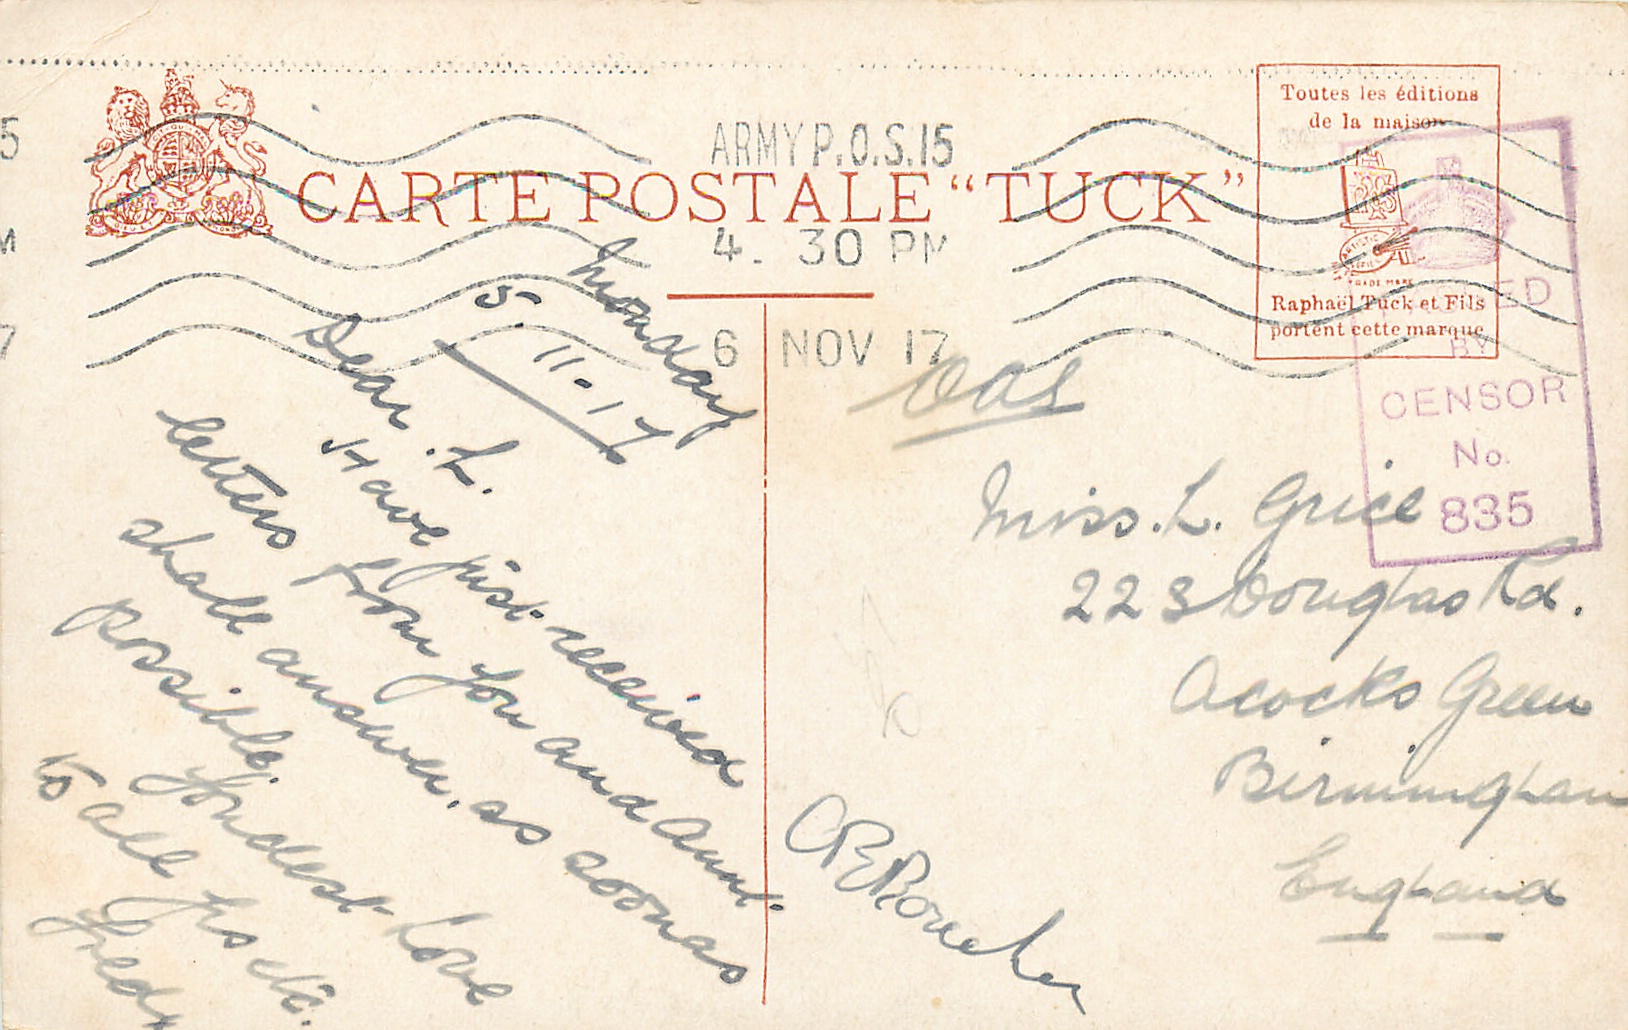 ARMY P.O.S. 15
CARTE POSTALE "TUCK"
4. 30 PM
6 NOV 17
Toutes les éditions
de la maison
Raphaël Tuck et Fils
portent cette marque
BY
CENSOR
No.
835
Monday
5.11.17
Dear. L.
Have just received
letters from you and Aunt.
shall answer, as soon as
possible. Fondest love
to all frs etc.
Fred
OAS
Miss. L. Grice
223 Douglas Rd.
Acocks Green
Birmingham
England